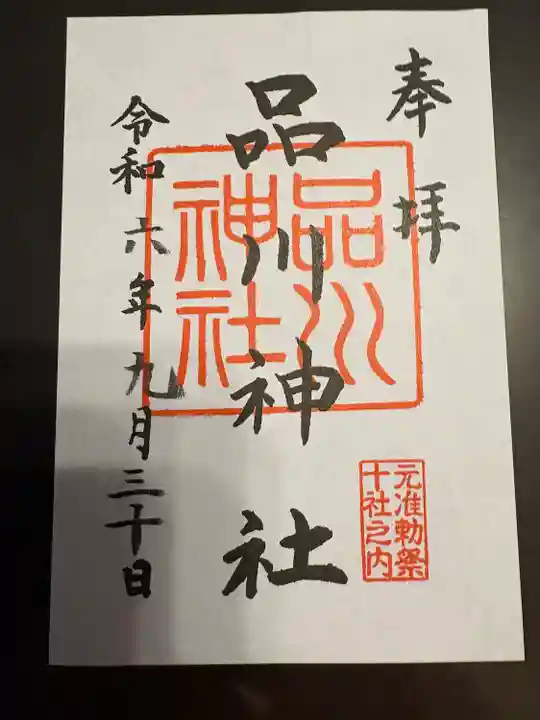 奉拝
品川神社
令和六年九月三十日
品川
神社
元准勅祭
十社之内